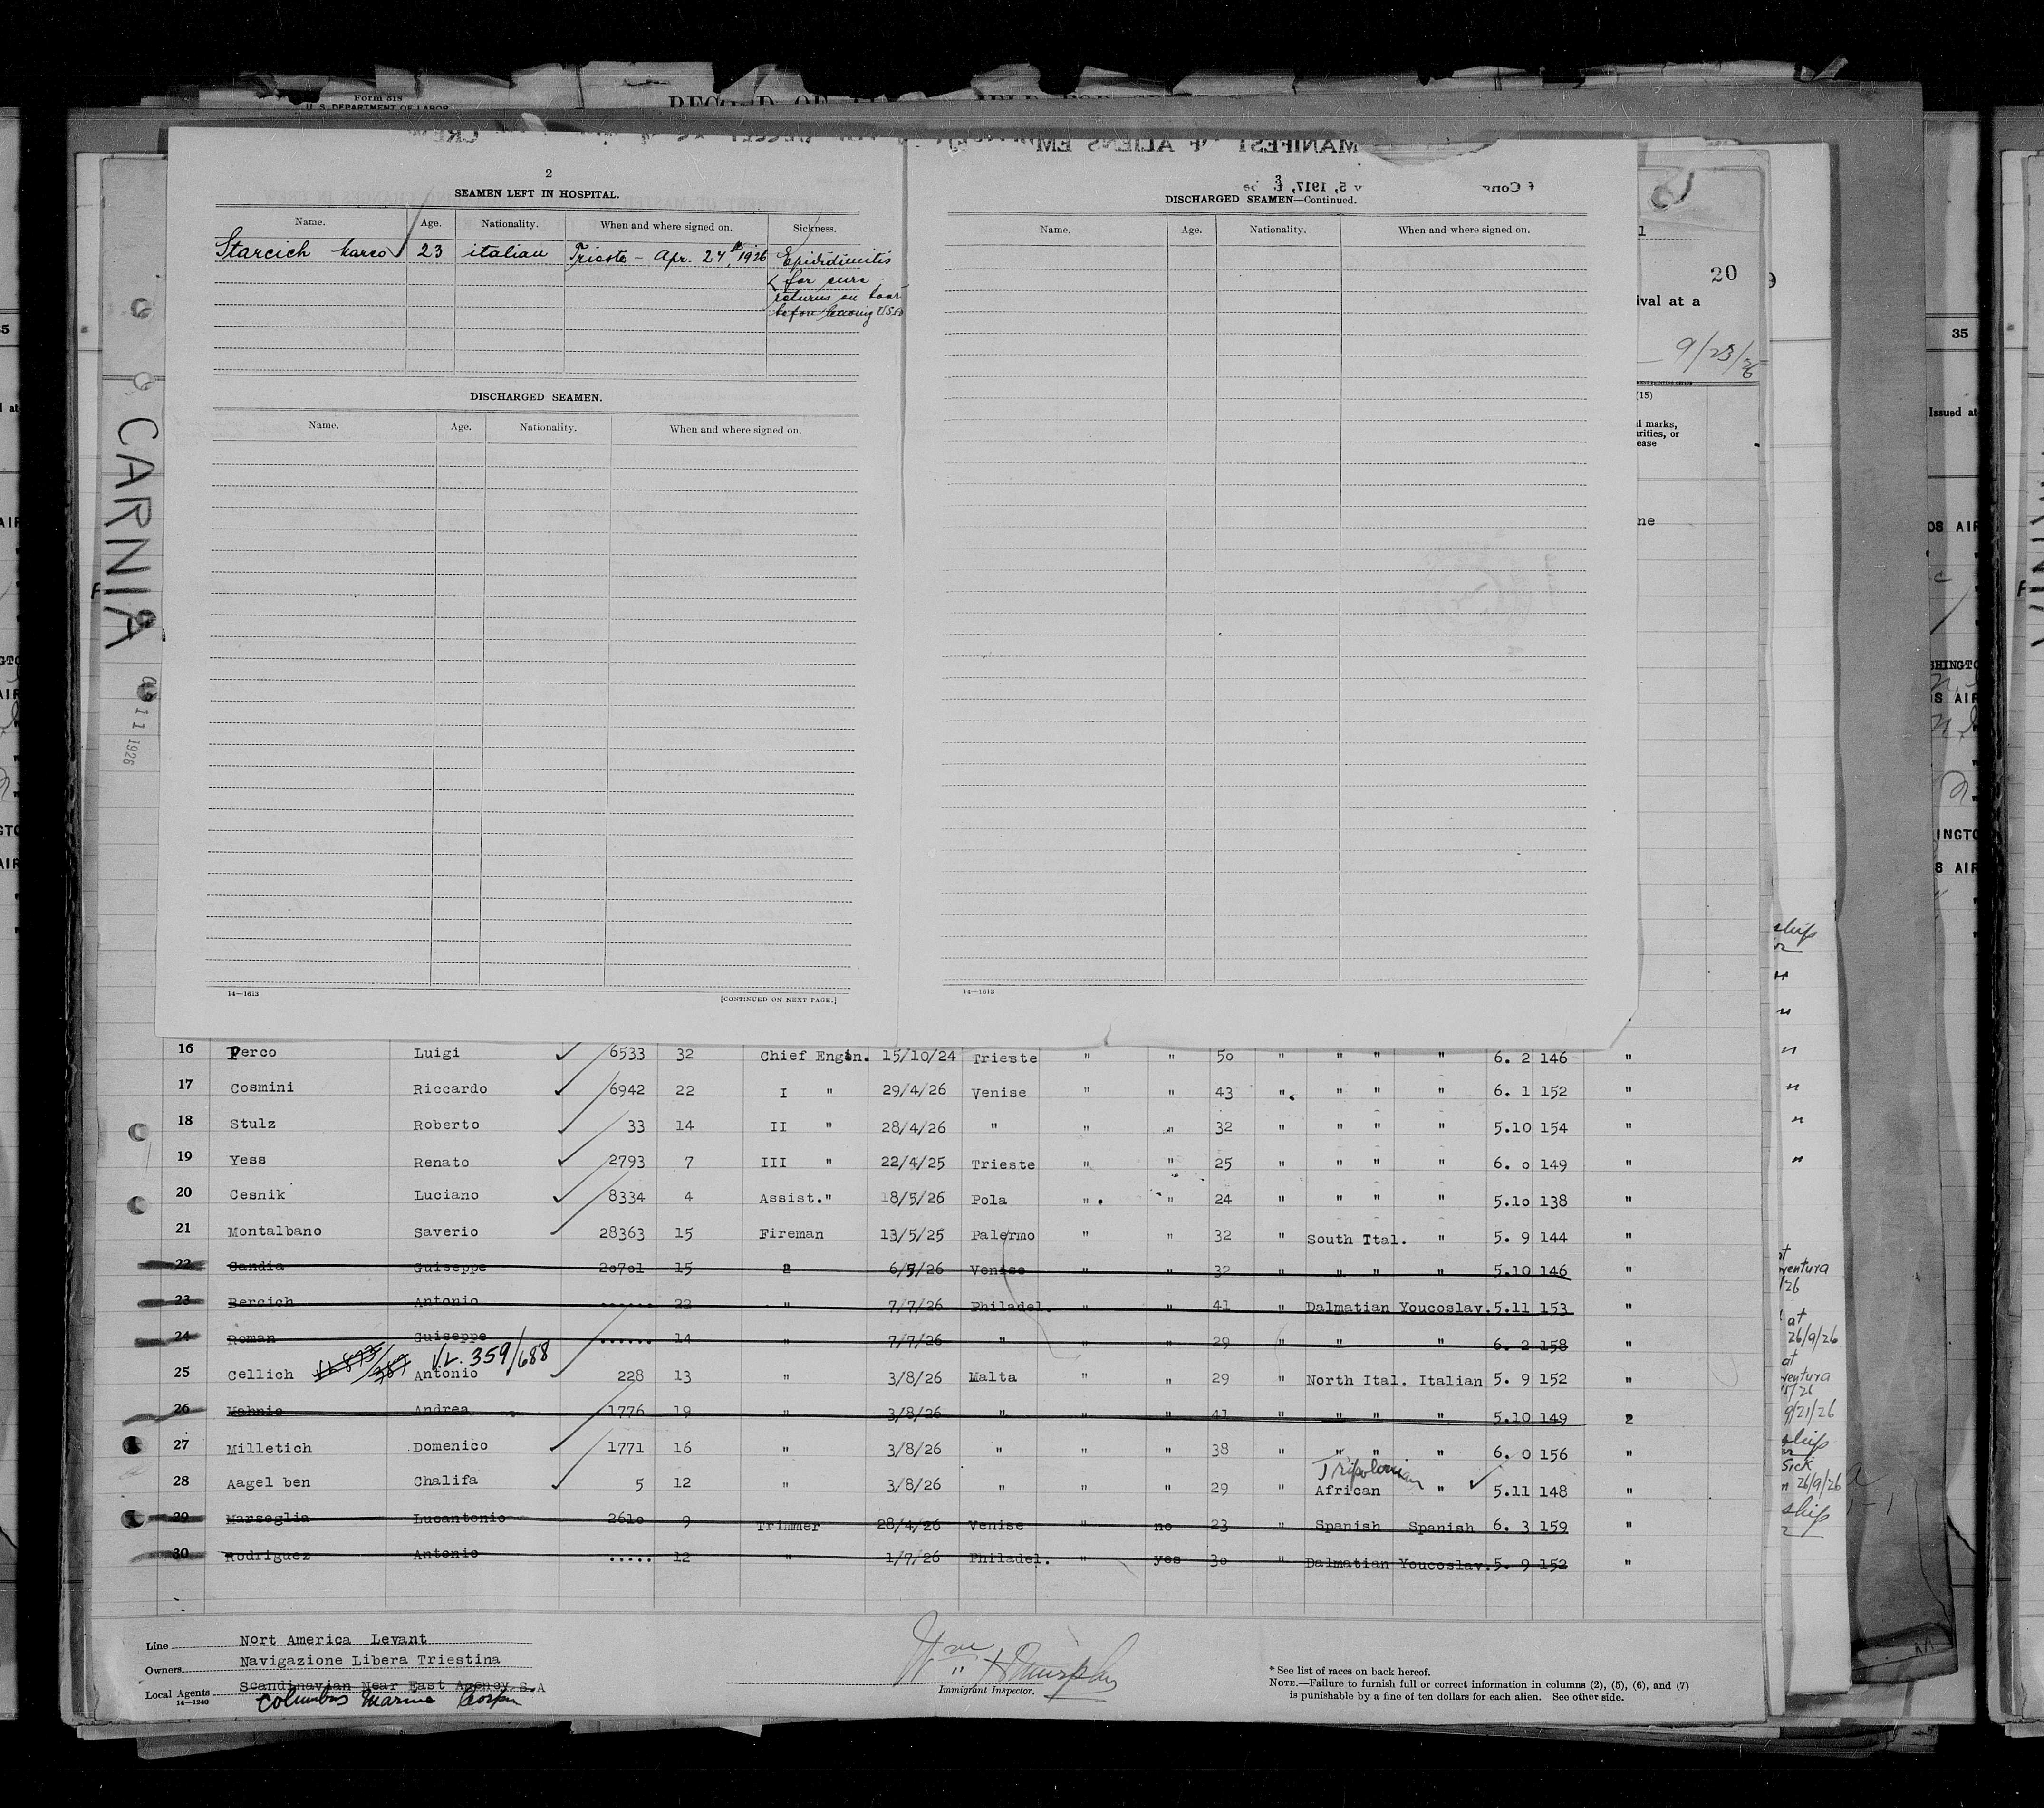 Form 818
U. S. DEPARTMENT OF LABOR
2
SEAMEN LEFT IN HOSPITAL.
Name. Age. Nationality. When and where signed on. Sickness.
Starcich Marco 23 italian Trieste - Apr. 24th 1926 Epididimitis
for cure
returns on boar
before leaving U.S.A
DISCHARGED SEAMEN.
Name. Age. Nationality. When and where signed on.
14—1613 [CONTINUED ON NEXT PAGE.]
3
DISCHARGED SEAMEN—Continued.
Name. Age. Nationality. When and where signed on.
14—1613
CARNIA
11 1926
20
ival at a
9/23/26
(15)
l marks,
arities, or
ease
me
35
Issued at
16 Perco Luigi 6533 32 Chief Engin. 15/10/24 Trieste " " 50 " " " " 6. 2 146 "
17 Cosmini Riccardo 6942 22 I " 29/4/26 Venise " " 43 " " " " 6. 1 152 "
18 Stulz Roberto 33 14 II " 28/4/26 " " " 32 " " " " 5.10 154 "
19 Yess Renato 2793 7 III " 22/4/25 Trieste " " 25 " " " " 6. 0 149 "
20 Cesnik Luciano 8334 4 Assist." 18/5/26 Pola " " 24 " " " " 5.10 138 "
21 Montalbano Saverio 28363 15 Fireman 13/5/25 Palermo " " 32 " South Ital. " 5. 9 144 "
22 Candia Guiseppe 20701 15 " 6/5/26 Venise " " 32 " " " " 5.10 146 "
23 Bercich Antonio ...... 22 " 7/7/26 Philadel. " " 41 " Dalmatian Youcoslav. 5.11 153 "
24 Roman Guiseppe ...... 14 " 7/7/26 " " " 29 " " " " 6. 2 158 "
V.L. 359/688
25 Cellich Antonio 228 13 " 3/8/26 Malta " " 29 " North Ital. Italian 5. 9 152 "
26 Mahnic Andrea 1776 19 " 3/8/26 " " " 41 " " " " 5.10 149 "
27 Milletich Domenico 1771 16 " 3/8/26 " " " 38 " " " " 6. 0 156 "
Tripolonian
28 Aagel ben Chalifa 5 12 " 3/8/26 " " " 29 " African " 5.11 148 "
29 Marseglia Lucantonio 2610 9 Trimmer 28/4/26 Venise " no 23 " Spanish Spanish 6. 3 159 "
30 Rodriguez Antonio ..... 12 " 1/7/26 Philadel. " yes 30 " Dalmatian Youcoslav. 5. 9 152 "
Line Nort America Levant
Owners Navigazione Libera Triestina
Local Agents Scandinavian Near East Agency S.A
14—1240 Columbus Marine Corpn
Immigrant Inspector.
* See list of races on back hereof.
NOTE.—Failure to furnish full or correct information in columns (2), (5), (6), and (7)
is punishable by a fine of ten dollars for each alien. See other side.
ship
ventura
at
26/9/26
at
ventura
9/21/26
ship
Sick
26/9/26
ship